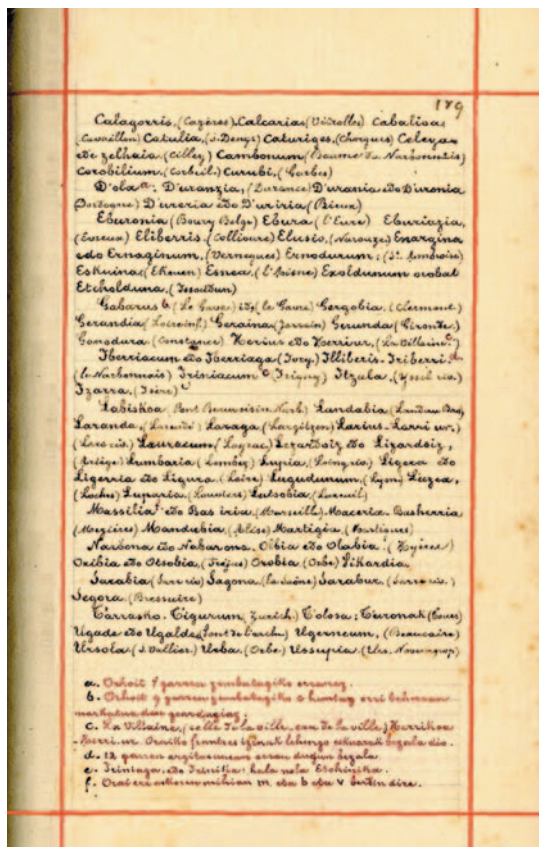 189
Calagorris, (Cazères) Calcaria, (Vitrolles) Cabalisa
(Cavaillon) Catulia, (S. Denys) Caturiges, (Chorgues) Celeya
edo Zelhaia (Cilley) Cambonum (Baume la Narbonnais)
Corobilium, (Corbeil.) Curubi, (Corbes)
D'ola a. D'uranzia, (Durance) D'urania edo D'uronia
Dordogne) D'ureria edo D'uriria (Rieux)
Eburonia (Bourg Belge) Ebura (l'Eure) Eburiazia,
(Evreux) Eliberris, (Collioure) Elusio, (Narouze) Enargina
edo Ernaginum, (Vernegues) Ernodurum, (St. Ambroise)
Eskuina, (Ekeuen) Esnea, (l'Aisne) Exoldunum orobat
Etcholduna, (Issouldun)
Gabarus b (Le Gave) id, (le Gavre) Gergobia, (Clermont)
Gerundia, (Loireinf.) Geraina, (Jorrain) Gerunda (Gironde)
Gonodura (Constance) Herius edo Herriur, (La Villaine c.)
Iberriacum edo Iberriaga (Ivry) Illiberis-Iriberri d.
(le Narbonnais) Iriniacum e (Irigny) Itzula, (Yssel riv.)
Izarra, (Isère)
Labiskoa (Pont Beauvoisin Narb) Landabia (Landau Bas)
Laranda, Laraga (Largitzen) Larius-Larri ur,
Lauracum (Layrac) Lezardoiz edo Lizardoiz,
(Ariège) Lumbaria (Lombez) Lupia, (Loing riv) Ligera edo
Ligerria edo Ligura (Loire) Lugudunum, (Lyon) Luzea,
(Loches) Luparia, (Louviers) Lutsobia (Luxeuil)
Massilia f edo Bas iria, (Marseille) Maceria-Basherria
(Mezières) Mandubia, (Alise) Martigia (Martigues)
Narbona edo Nabarona. Olbia edo Olabia (Hyères)
Oxibia edo Otsobia, (Frejus) Orobia (Orbe) Pikardia.
Sarabia (Sare riv) Sagona, (la Saône) Sarabur, (Sarre riv.)
Segora (Bressuire)
Tarrasko. Tigurum (Zurich.) Tolosa; Turonak (Tours)
Ugade edo Ugalde, (Pont de l'arche) Ugerneum, (Beaucaire)
Ursola (S. Vallier) Urba, (Orbe) Ussupia (Urs. Novempop)
a. Orhoit 7 garren zembakiziko erranez.
b. Orhoit 9 garren zembakiziko
markatua dire
c. La Villaine, (celle de la ville-eau de la ville) Herrikoa
Herri-ur. Oraiko frantses izenak lehengo eskuarak bezala dio.
d. 12 garren argitasunean erran dugun bezala
e. Irintaga, edo Irinika; hala nola Etchinika.
f. Orai ere eskuaran mihian m. eta b eta v bertin dire.